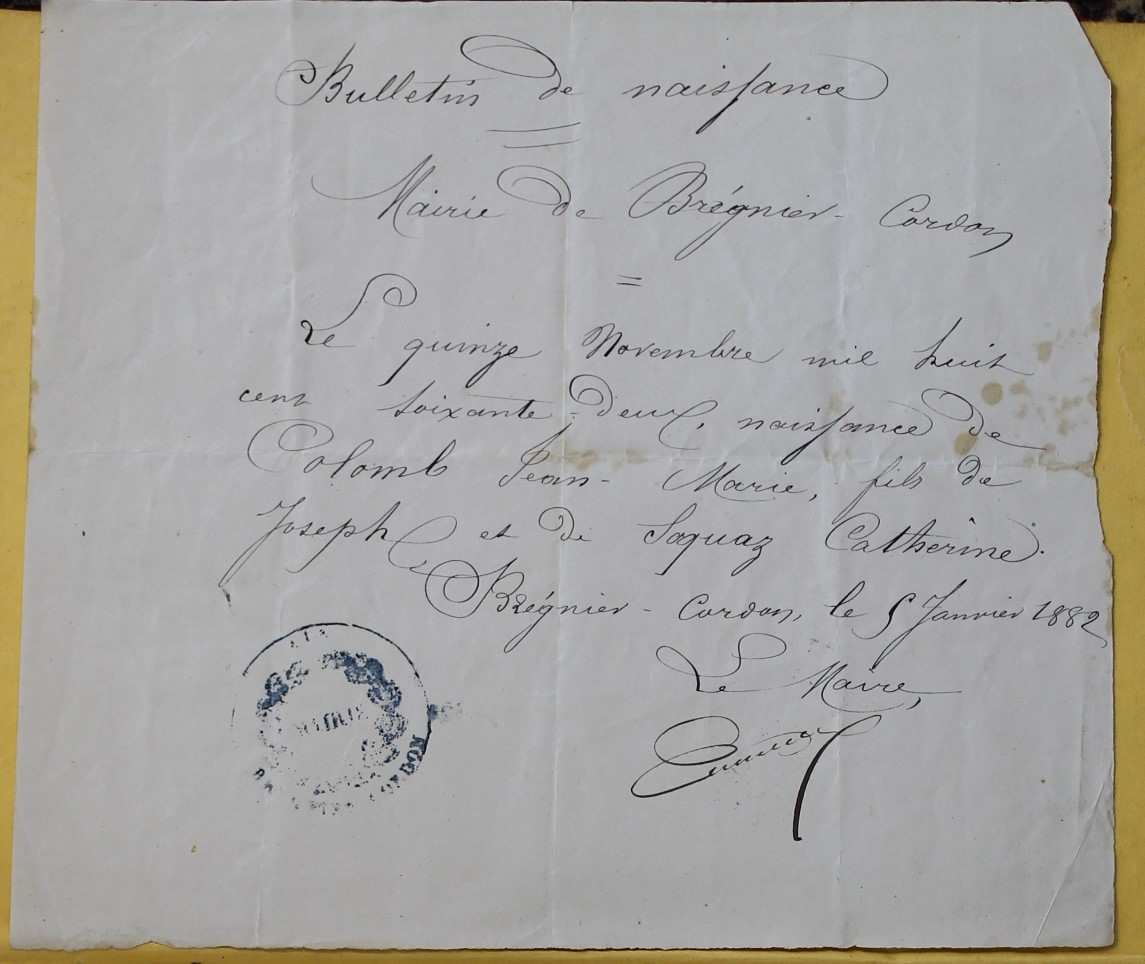 Bulletin de naissance
Mairie de Brégnier-Cordon
Le quinze Novembre mil huit
cent soixante-deux, naissance de
Colomb Jean-Marie, fils de
Joseph et de Saquaz Catherine.
Brégnier-Cordon, le 5 Janvier 1882
Le Maire,
AIN
MAIRIE
CORDON